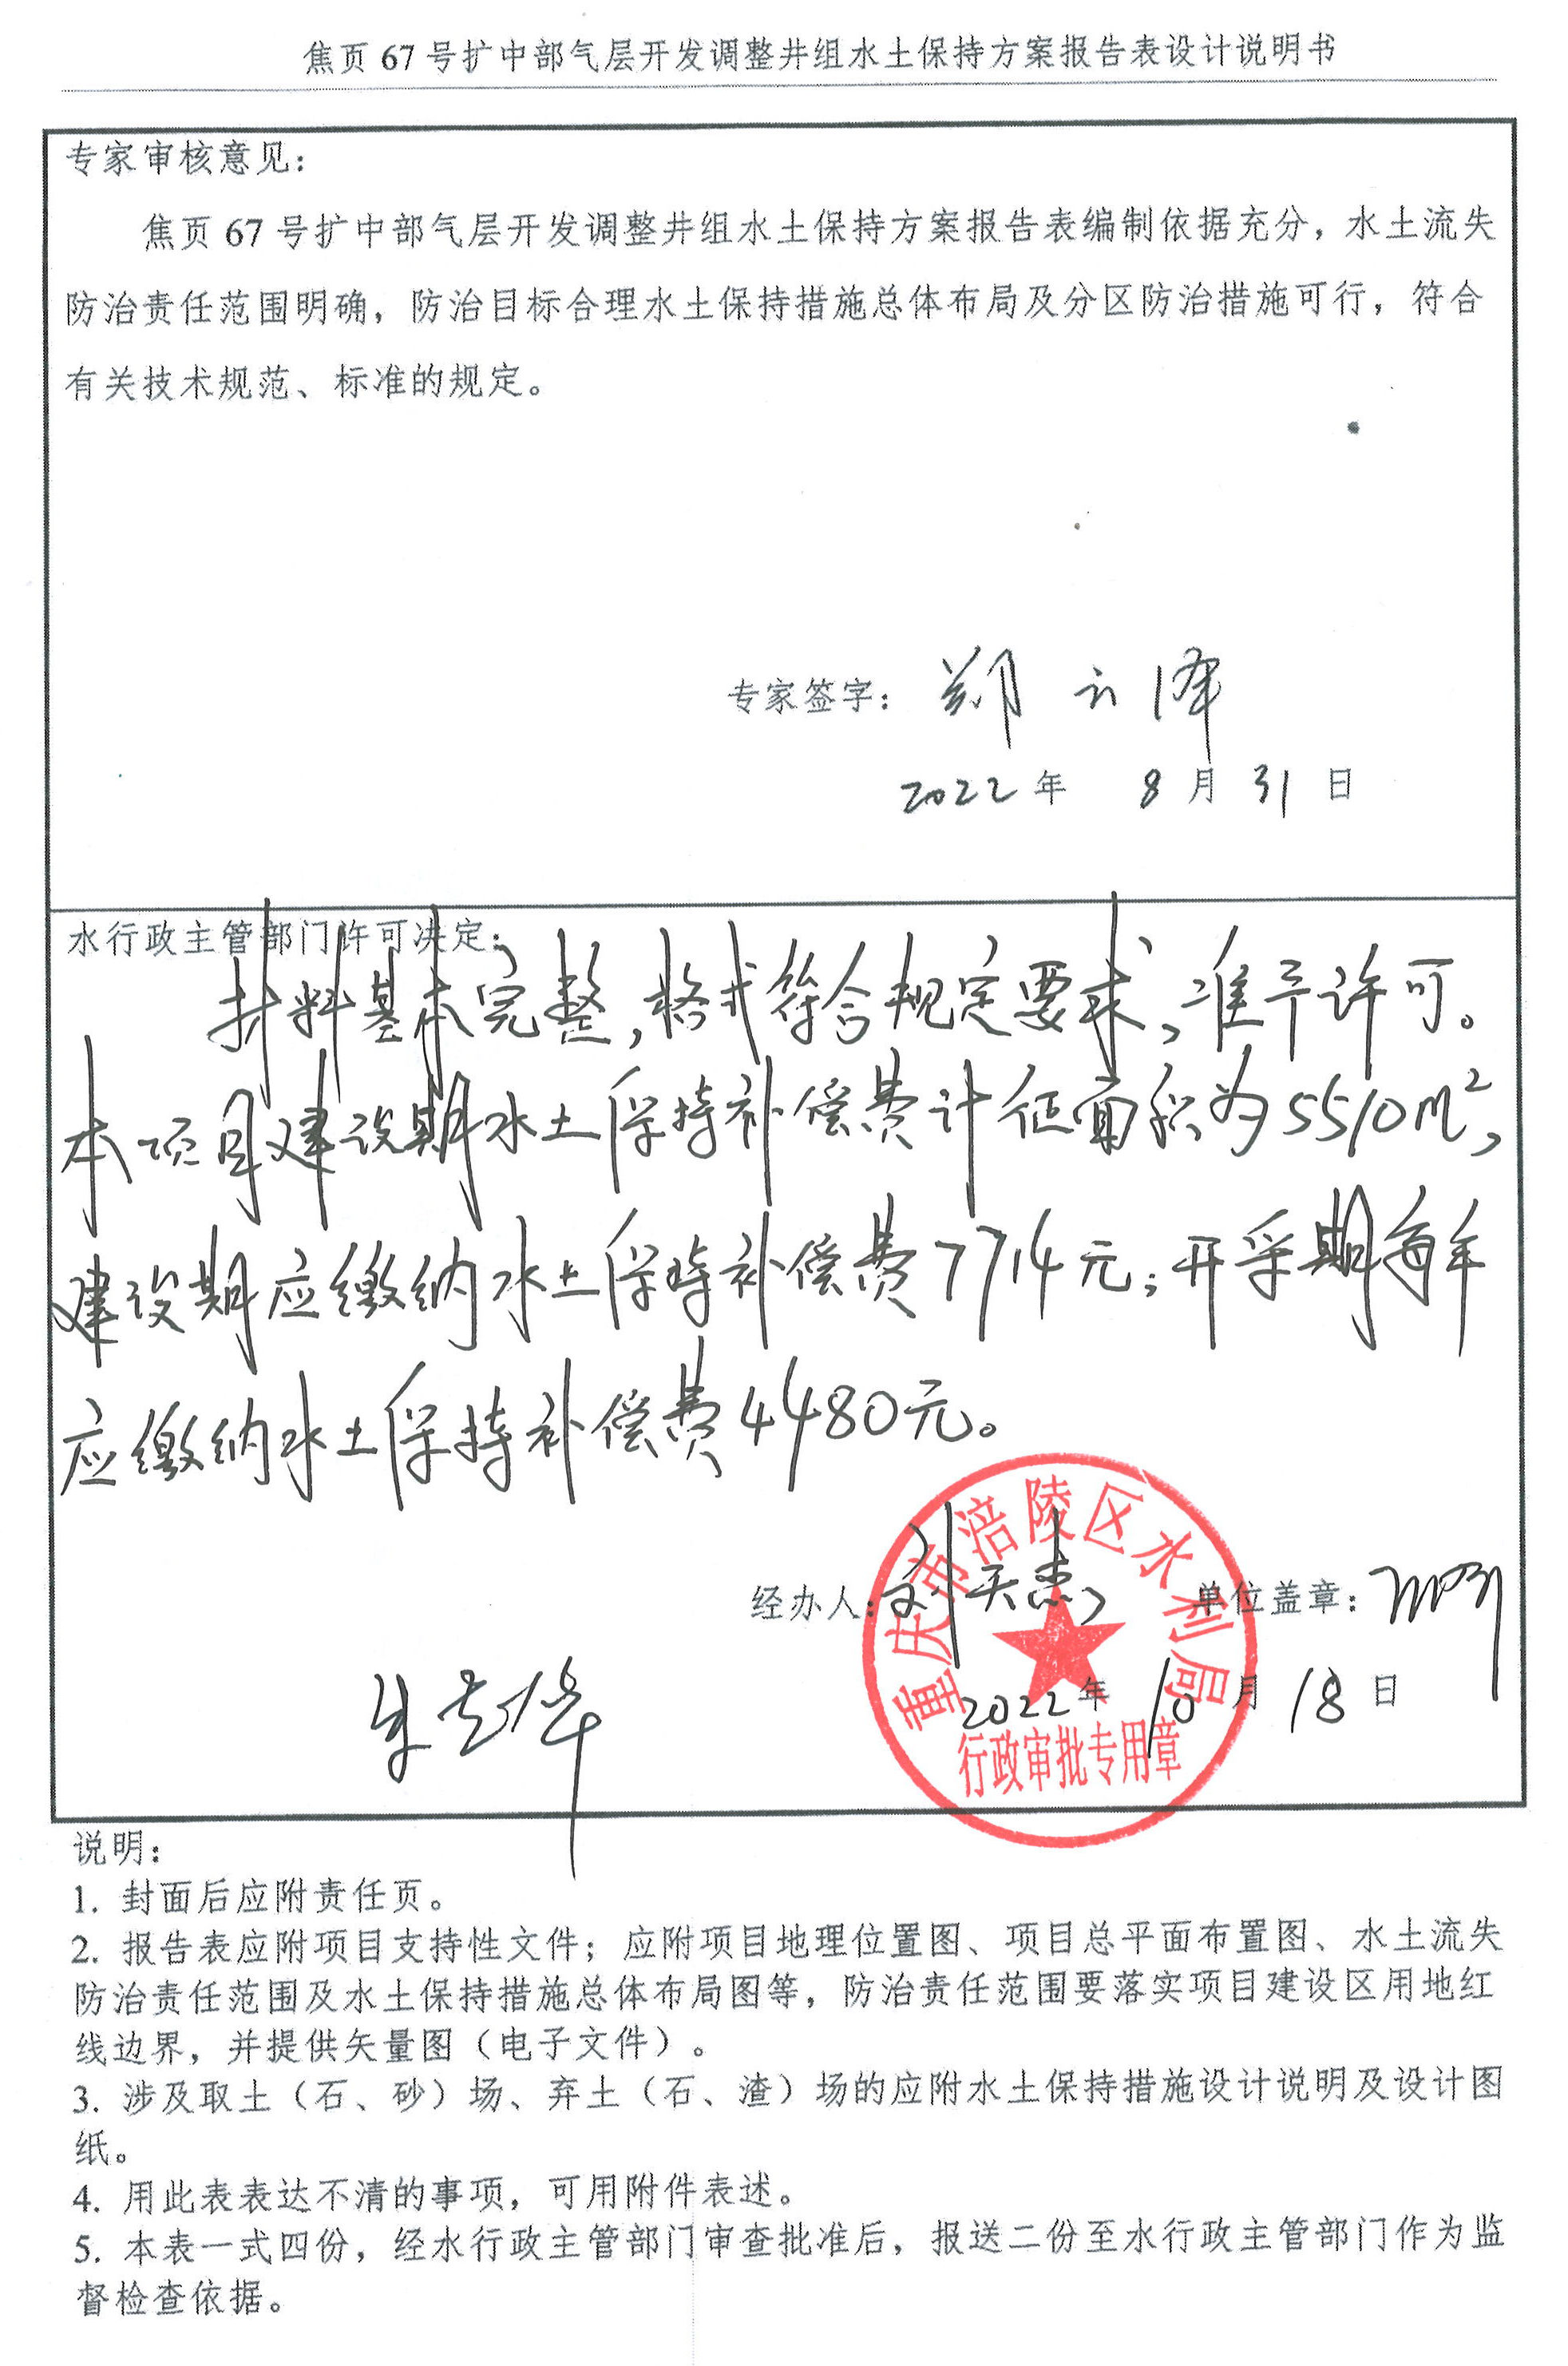 焦页 67 号扩中部气层开发调整井组水土保持方案报告表设计说明书
专家审核意见：
焦页 67 号扩中部气层开发调整井组水土保持方案报告表编制依据充分，水土流失
防治责任范围明确，防治目标合理水土保持措施总体布局及分区防治措施可行，符合
有关技术规范、标准的规定。
专家签字：
2022 年 8 月 31 日
水行政主管部门许可决定：
材料基本完整，格式符合规定要求，准予许可。
本项目建设期水土保持补偿费计征面积为5510m²，
建设期应缴纳水土保持补偿费7714元；开采期每年
应缴纳水土保持补偿费4480元。
重庆市涪陵区水利局
经办人：刘天杰 单位盖章：
2022 年 10 月 18 日
行政审批专用章
说明：
1. 封面后应附责任页。
2. 报告表应附项目支持性文件；应附项目地理位置图、项目总平面布置图、水土流失
防治责任范围及水土保持措施总体布局图等，防治责任范围要落实项目建设区用地红
线边界，并提供矢量图（电子文件）。
3. 涉及取土（石、砂）场、弃土（石、渣）场的应附水土保持措施设计说明及设计图
纸。
4. 用此表表达不清的事项，可用附件表述。
5. 本表一式四份，经水行政主管部门审查批准后，报送二份至水行政主管部门作为监
督检查依据。